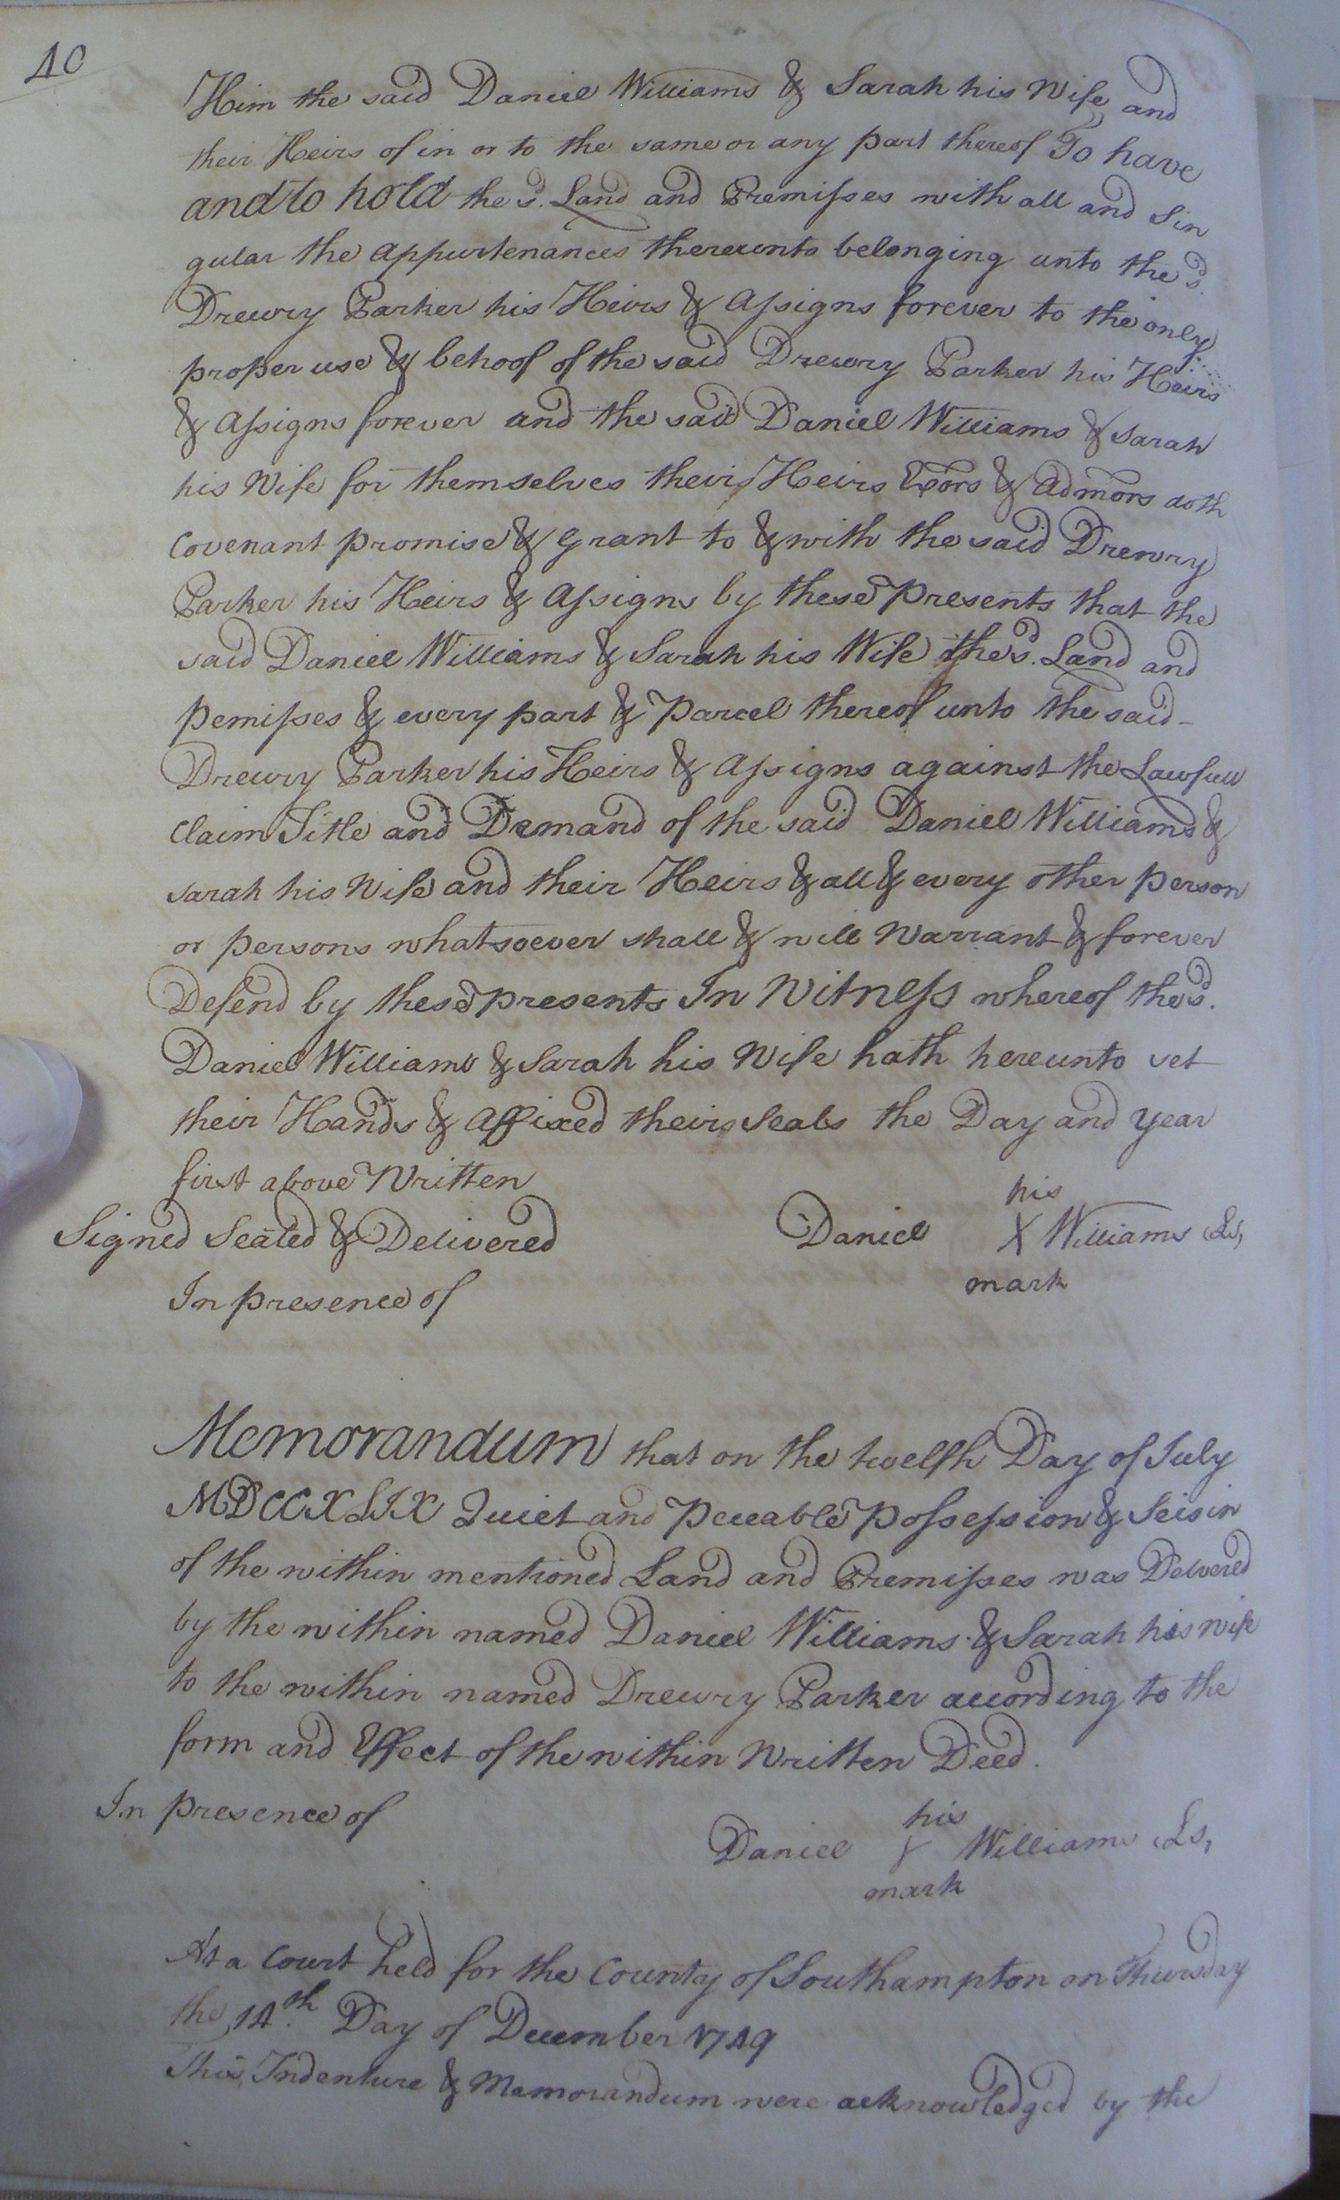 40
Him the said Daniel Williams & Sarah his Wife and
their Heirs of in or to the same or any part thereof To have
and to hold the sd. Land and Premisses with all and Sin
gular the Appurtenances thereunto belonging unto the sd.
Drewry Parker his Heirs & Assigns forever to the only
proper use & behoof of the said Drewry Parker his Heirs
& Assigns forever and the said Daniel Williams & Sarah
his Wife for themselves their Heirs Exors & Admors doth
Covenant promise & grant to & with the said Drewry
Parker his Heirs & Assigns by these presents that the
said Daniel Williams & Sarah his Wife the sd. Land and
pemisses & every part & Parcel thereof unto the said
Drewry Parker his Heirs & Assigns against the Lawfull
Claim Title and Demand of the said Daniel Williams &
Sarah his Wife and their Heirs & all & every other person
or persons whatsoever shall & will Warrant & forever
Defend by these presents In Witness whereof the sd.
Daniel Williams & Sarah his Wife hath hereunto set
their Hands & Affixed their Seals the Day and year
first above Written
Signed Sealed & Delivered
In presence of
his
Daniel X Williams (Ls,
mark
Memorandum that on the twelfth Day of July
MDCCXLIX Quiet and Peceable Possession & Seisin
of the within mentioned Land and Premisses was Delvered
by the within named Daniel Williams & Sarah his wife
to the within named Drewry Parker according to the
form and Effect of the within Written Deed.
In presence of
his
Daniel X Williams (Ls,
mark
At a Court held for the County of Southampton on Thursday
the 14th. Day of December 1749
This Indenture & Memorandum were acknowledged by the